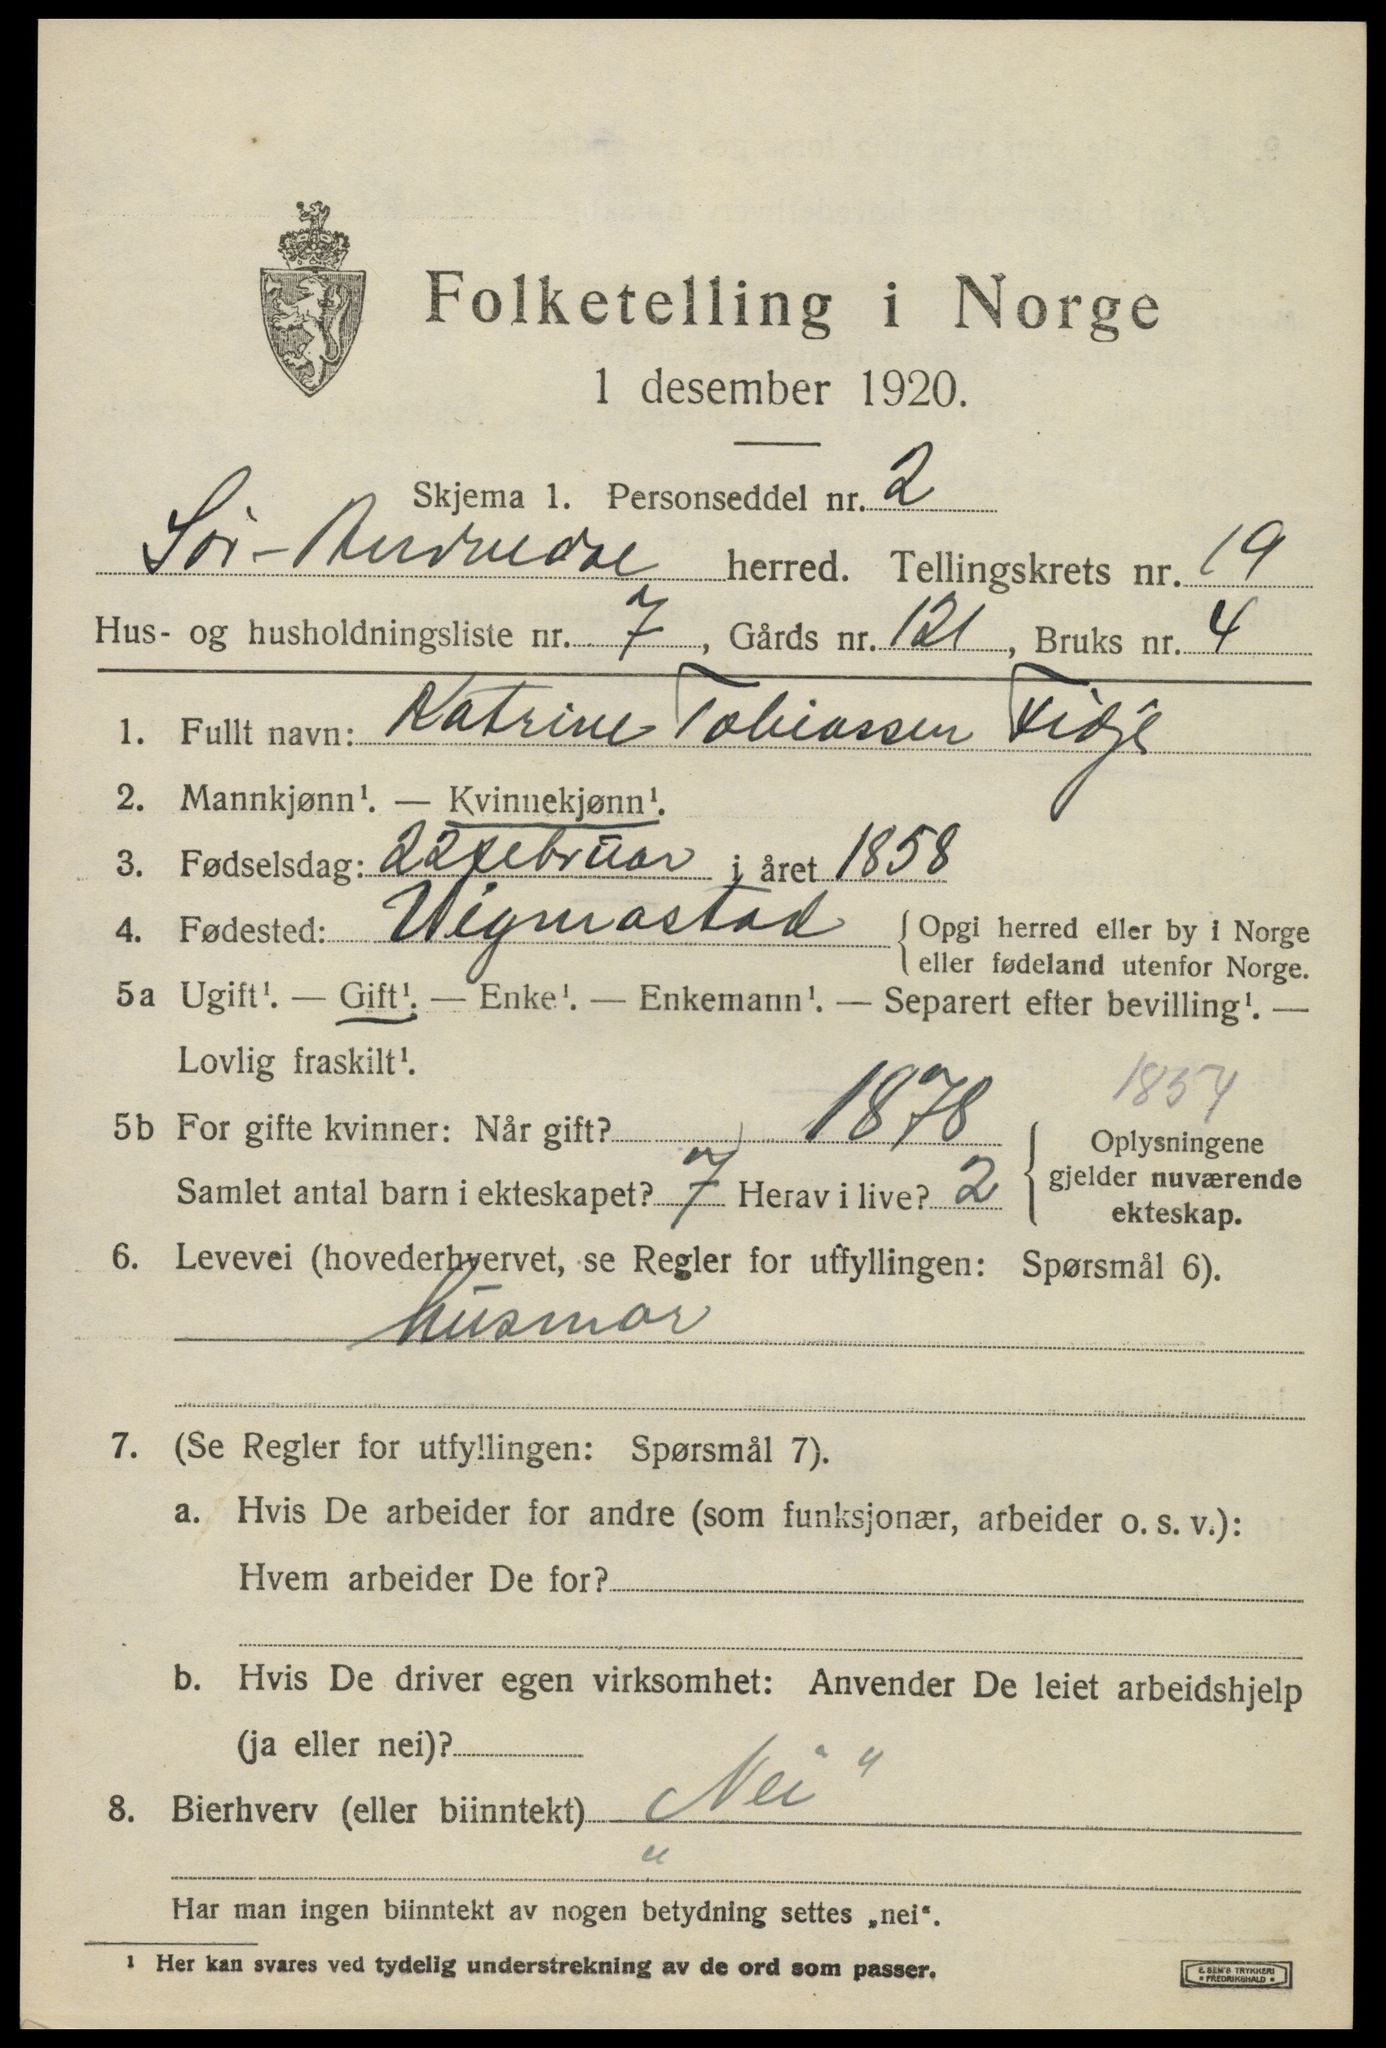 Folketelling i Norge
1 desember 1920.
Skjema 1. Personseddel nr. 2
Sör-Audnedal herred. Tellingskrets nr. 19
Hus- og husholdningsliste nr. 7, Gårds nr. 121, Bruks nr. 4
1. Fullt navn: Katrine Tobiassen Fidje
2. Mannkjønn¹. — Kvinnekjønn¹.
3. Fødselsdag: 22 februar i året 1858
4. Fødested: Vigmostad { Opgi herred eller by i Norge
eller fødeland utenfor Norge.
5a Ugift¹. — Gift¹. — Enke¹. — Enkemann¹. — Separert efter bevilling¹. —
Lovlig fraskilt¹.
1854
5b For gifte kvinner: Når gift? 1878
Samlet antal barn i ekteskapet? 7 Herav i live? 2
{ Oplysningene
gjelder nuværende
ekteskap.
6. Levevei (hovederhvervet, se Regler for utfyllingen: Spørsmål 6).
husmor
7. (Se Regler for utfyllingen: Spørsmål 7).
a. Hvis De arbeider for andre (som funksjonær, arbeider o. s. v.):
Hvem arbeider De for?
b. Hvis De driver egen virksomhet: Anvender De leiet arbeidshjelp
(ja eller nei)?
8. Bierhverv (eller biinntekt) „Nei"
Har man ingen biinntekt av nogen betydning settes „nei“.
¹ Her kan svares ved tydelig understrekning av de ord som passer.
E. SEM'S TRYKKERI
• FREDRIKSHALD •